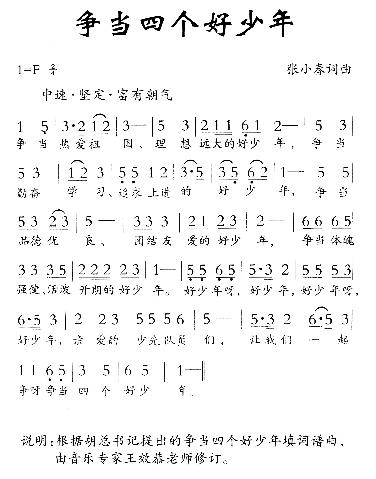 争当四个好少年
1=F 2/4 张小春词曲
中速·坚定·富有朝气
1 5 | 3·2 1 2 | 3— | 5 3 | 2 1 1 6 1 | 2— | 5 3 |
争当热爱祖国、理想远大的好少年，争当
勤奋学习、追求上进的好少年，争当
5 3 2 3 | 5 5 | 5 3 5 | 2 0 2 3 | 2— | 6 6 6 5 |
品德优良、团结友爱的好少年，争当体魄
3·3 3 3 | 2 2 2 2 3 | 1— | 5 5 6 5 | 5·3 2 | 5 5 6 5 |
强健、活泼开朗的好少年。好少年呀，好少年，好少年呀，
6·5 3 | 2 3 | 2 3 | 5 5 3 5 | 2— | 5·3 2 | 6·5 3 |
好少年，亲爱的少先队员们，让我们一起
争呀争当四个好少年。
说明：根据胡总书记提出的争当四个好少年填词谱曲，
由音乐专家王效恭老师修订。